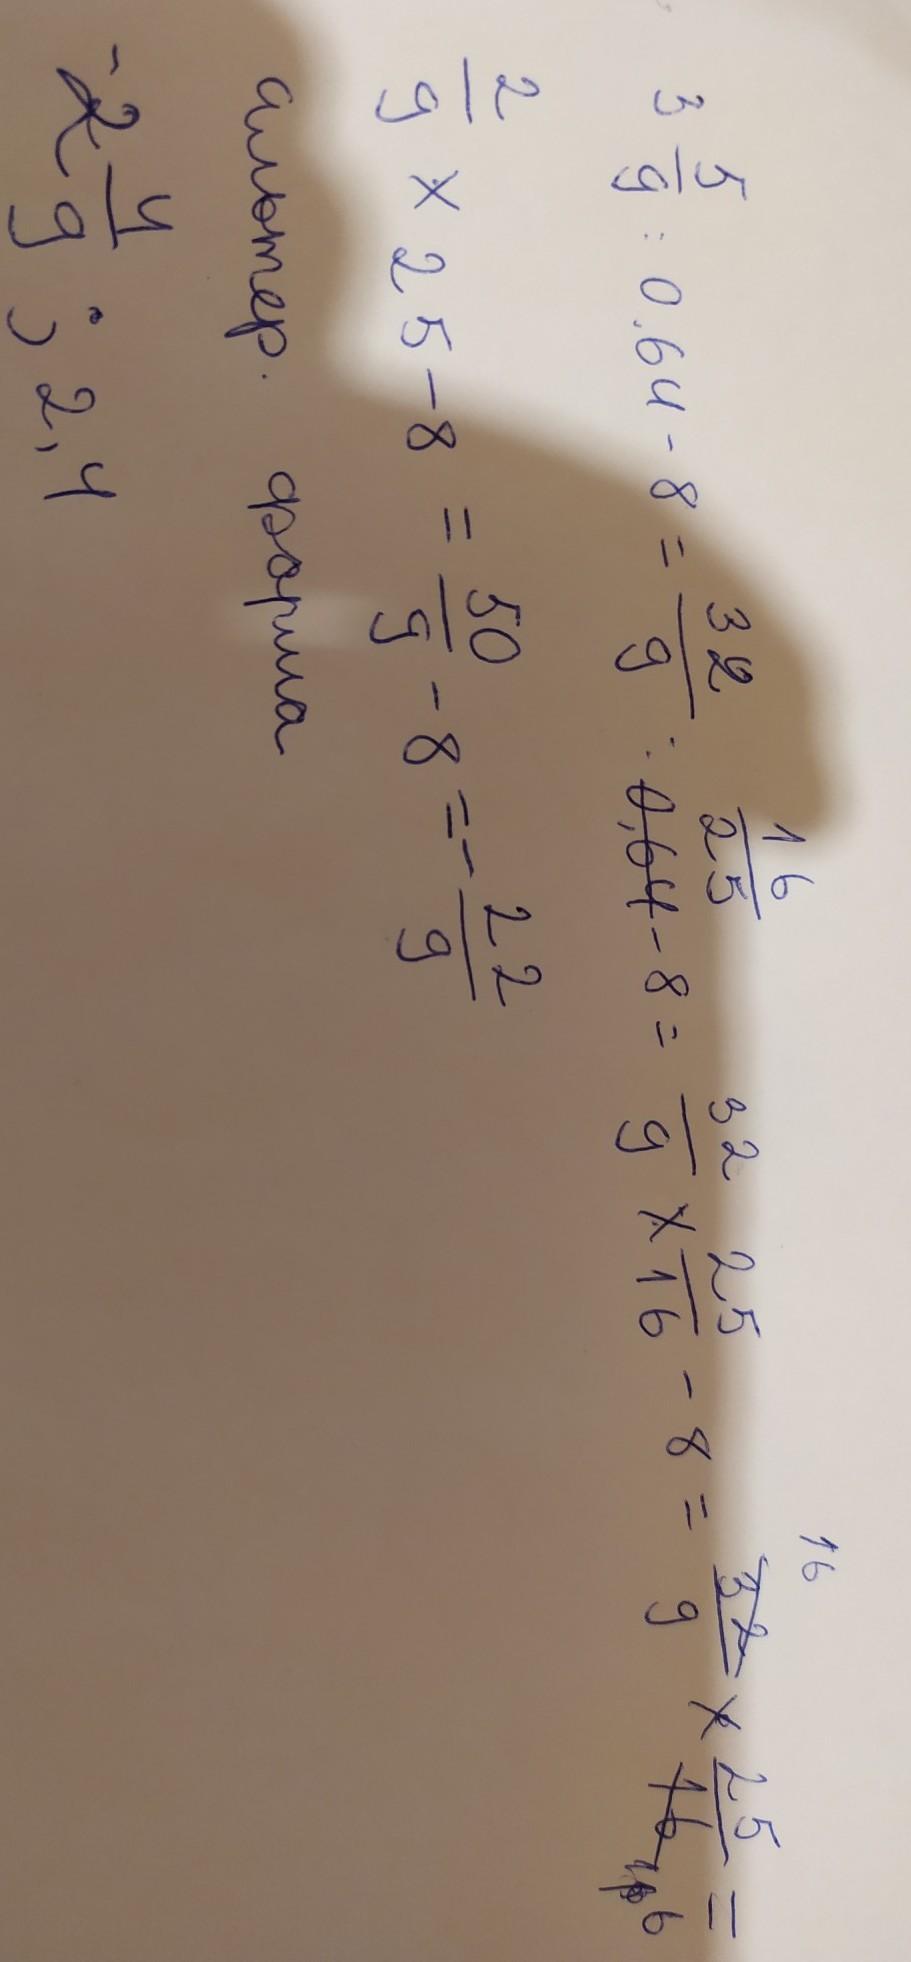 3 5/9 : 0.64 - 8 = 32/9 : 0,64 16/25 - 8 = 32/9 × 25/16 - 8 = 32/9 × 25/16 = 16
2/9 × 25 - 8 = 50/9 - 8 = - 22/9
альтер. форма
-2 4/9 ; 2,4